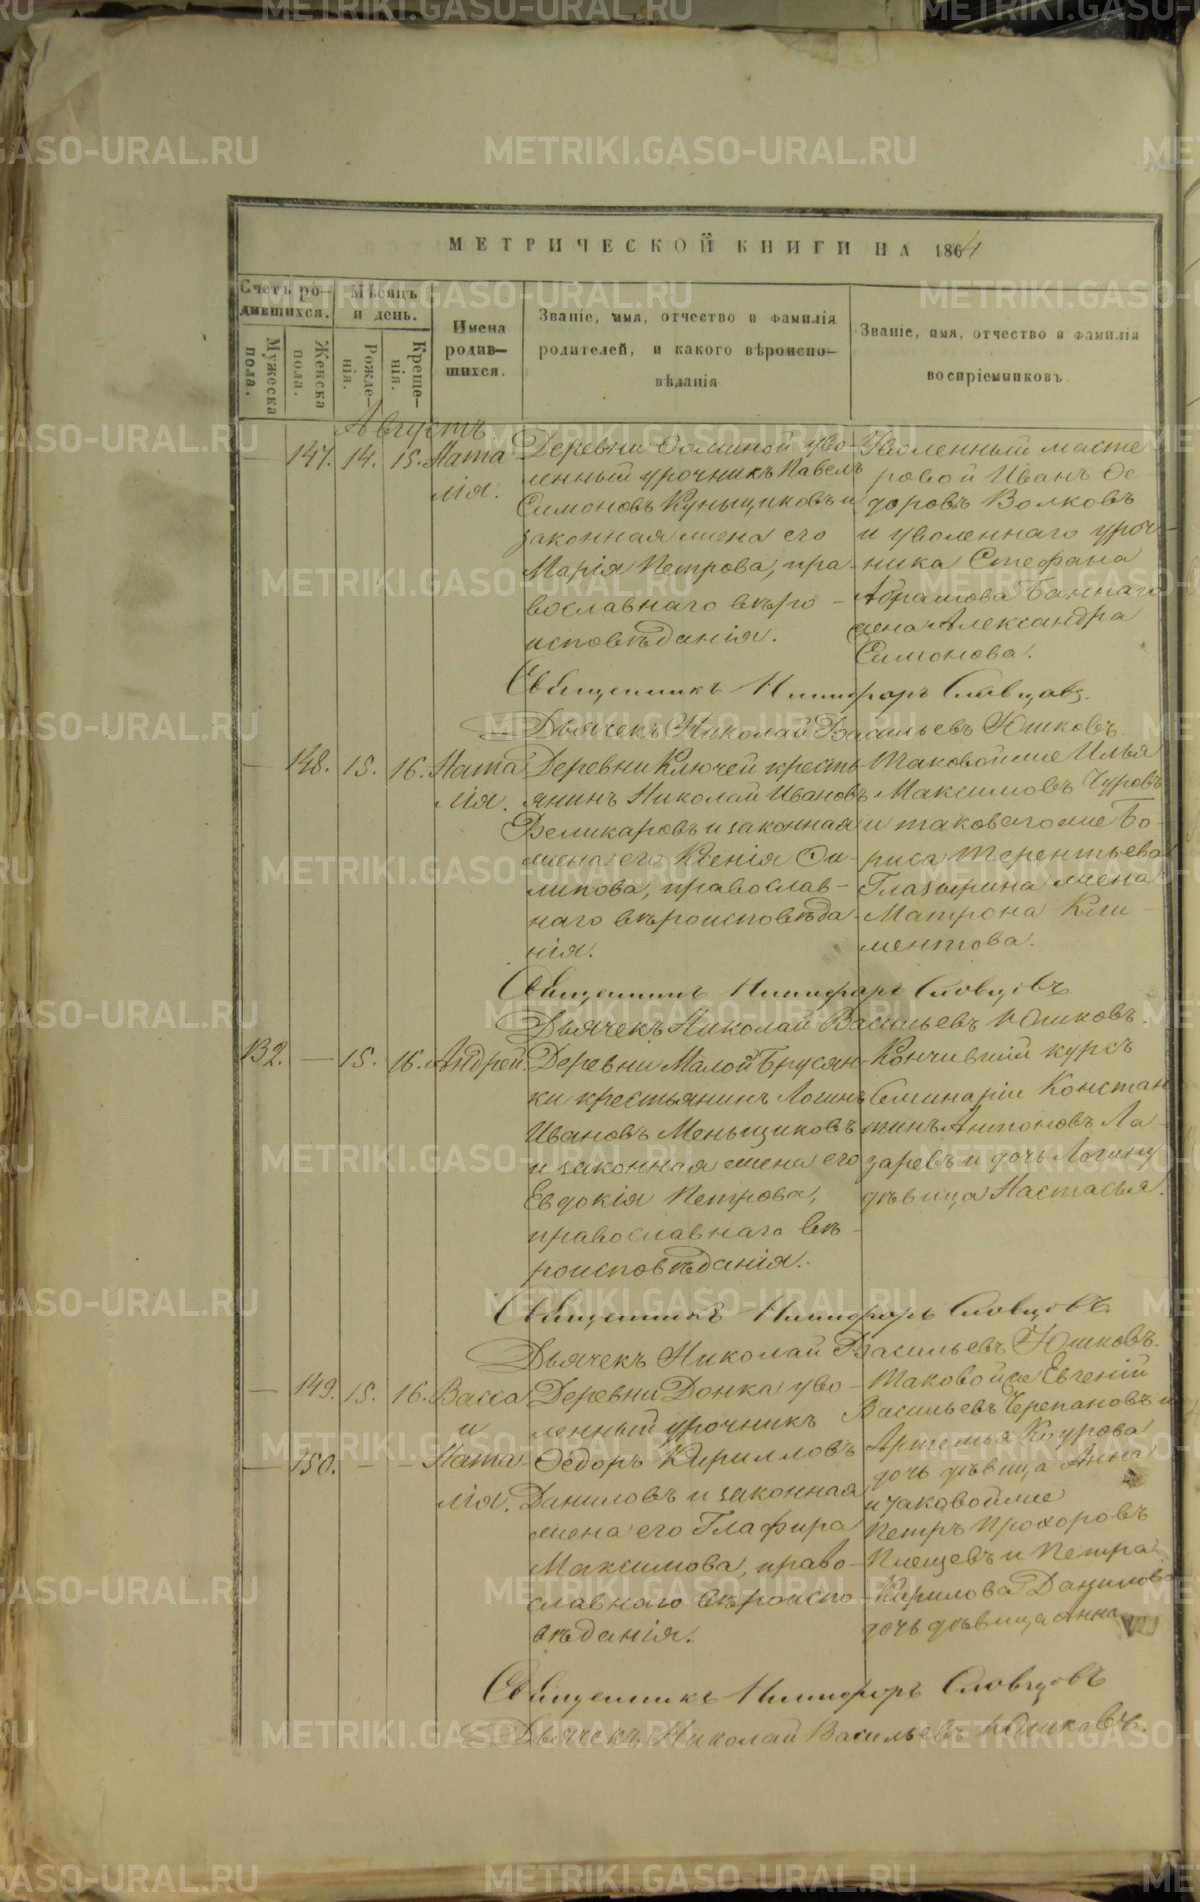 МЕТРИЧЕСКОЙ КНИГИ НА 1864
Счетъ ро-
дившихся.
Мѣсяцъ
и день.
Имена
родив-
шихся.
Званіе, имя, отчество и фамилія
родителей, и какого вѣроиспо-
вѣданія
Званіе, имя, отчество и фамилія
воспріемниковъ
Мужеска
пола.
Женска
пола.
Рожде-
нія.
Креще-
нія.
Августъ
— 147. 14. 15. Ната
лія.
Деревни уво-
ленный урочникъ Павелъ
Симоновъ Куньщиковъ и
законная жена его
Марія Петрова, пра-
вославнаго вѣро-
исповѣданія.
Уволенный масте
ровой Иванъ Ѳе
доровъ Волковъ
и уволеннаго уроч-
ника Стефана
Абрамова Баннаго
жена Александра
Симонова.
Священникъ Никифоръ Словцовъ.
Дьячекъ Николай Васильевъ Юшковъ.
— 148. 15. 16. Ната
лія.
Деревни Ключей кресть
янинъ Николай Ивановъ
Великаровъ и законная
жена его Ксенія Фи-
липова, православ-
наго вѣроисповѣда-
нія.
Таковой же Илья
Максимовъ Чуровъ
и таковаго же Бо-
риса Терентьева
Глазырина жена
Матрона Кли-
ментова.
Священникъ Никифоръ Словцовъ
Дьячекъ Николай Васильевъ Юшковъ.
132. — 15. 16. Андрей
Деревни Малой Брусян-
ки крестьянинъ Логинъ
Ивановъ Меньщиковъ
и законная жена его
Евдокія Петрова,
православнаго вѣ-
роисповѣданія.
Кончившій курсъ
Семинаріи Констан
тинъ Антоновъ Ла-
заревъ и дочь Логину
дѣвица Настасья.
Священникъ Никифоръ Словцовъ.
Дьячекъ Николай Васильевъ Юшковъ.
— 149. 15. 16. Васса
и
— 150. — — Ната-
лія.
Деревни Донка уво-
ленный урочникъ
Ѳедоръ Кирилловъ
Даниловъ и законная
жена его Глафира
Максимова, право-
славнаго вѣроиспо
вѣданія.
Таковой же Евгеній
Васильевъ Черепановъ и
Артемья Коурова
дочь дѣвица Анна
и таковой же
Петръ Прохоровъ
Плещевъ и Петра
Кирилова Данилова
дочь дѣвица Анна
Священникъ Никифоръ Словцовъ
Дьячекъ Николай Васильевъ Юшковъ.
METRIKI.GASO-URAL.RU